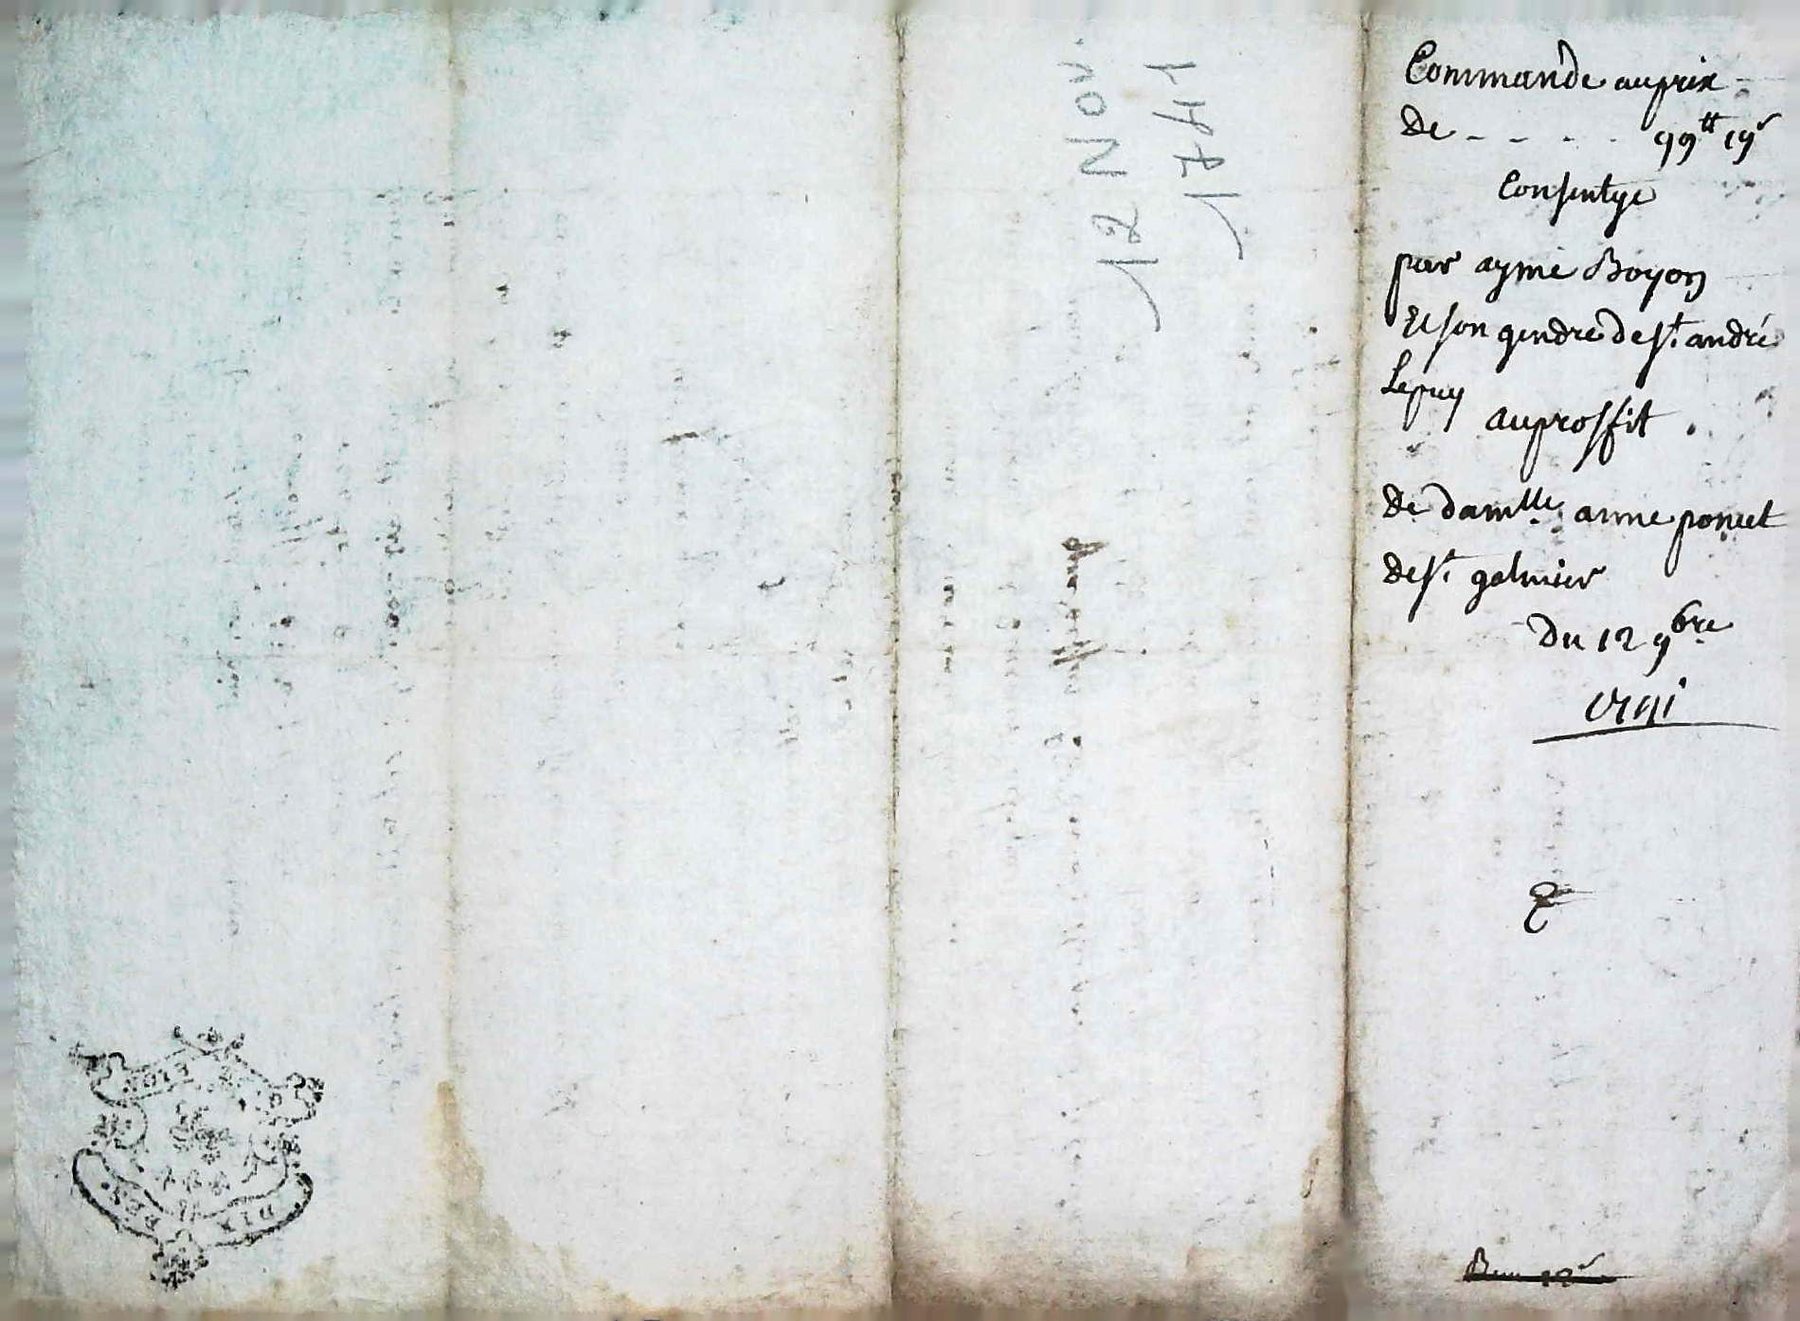 Commande auprix
De - - - - 99tt 19s
Consentye
par aymé Boyon
Et son gendre de st. andré
Lepuy
auproffit
De damlle. anne poncet
de st. galmier
Du 12 9bre.
1741
12 Nov.
1741
DIX